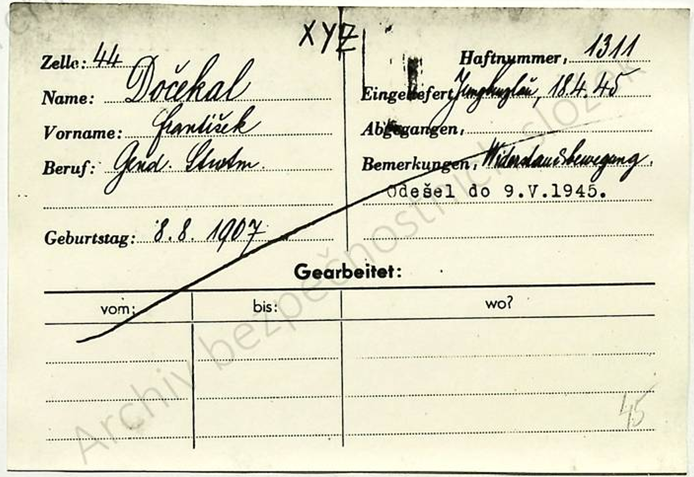 XYZ
Zelle: 44
Haftnummer, 1311
Name: Dočekal
Eingeliefert Jungbuzlau, 18.4.45
Vorname: František
Abgegangen,
Beruf: Gend. Stwtm.
Bemerkungen, Widerstandsbewegung.
Odešel do 9.V.1945.
Geburtstag: 8.8.1907
Gearbeitet:
vom: bis: wo?
45
Archiv bezpečnostních složek